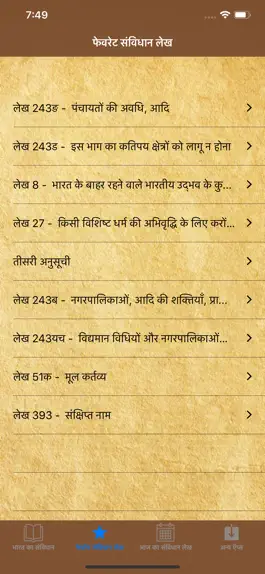 7:49
फेवरेट संविधान लेख
लेख 243ङ - पंचायतों की अवधि, आदि
लेख 243ड - इस भाग का कतिपय क्षेत्रों को लागू न होना
लेख 8 - भारत के बाहर रहने वाले भारतीय उद्‌भव के कु...
लेख 27 - किसी विशिष्ट धर्म की अभिवृद्धि के लिए करों...
तीसरी अनुसूची
लेख 243ब - नगरपालिकाओं, आदि की शक्तियाँ, प्रा...
लेख 243यच - विद्यमान विधियों और नगरपालिकाओं...
लेख 51क - मूल कर्तव्य
लेख 393 - संक्षिप्त नाम
भारत का संविधान
आज का संविधान लेख
अन्य ऐप्स